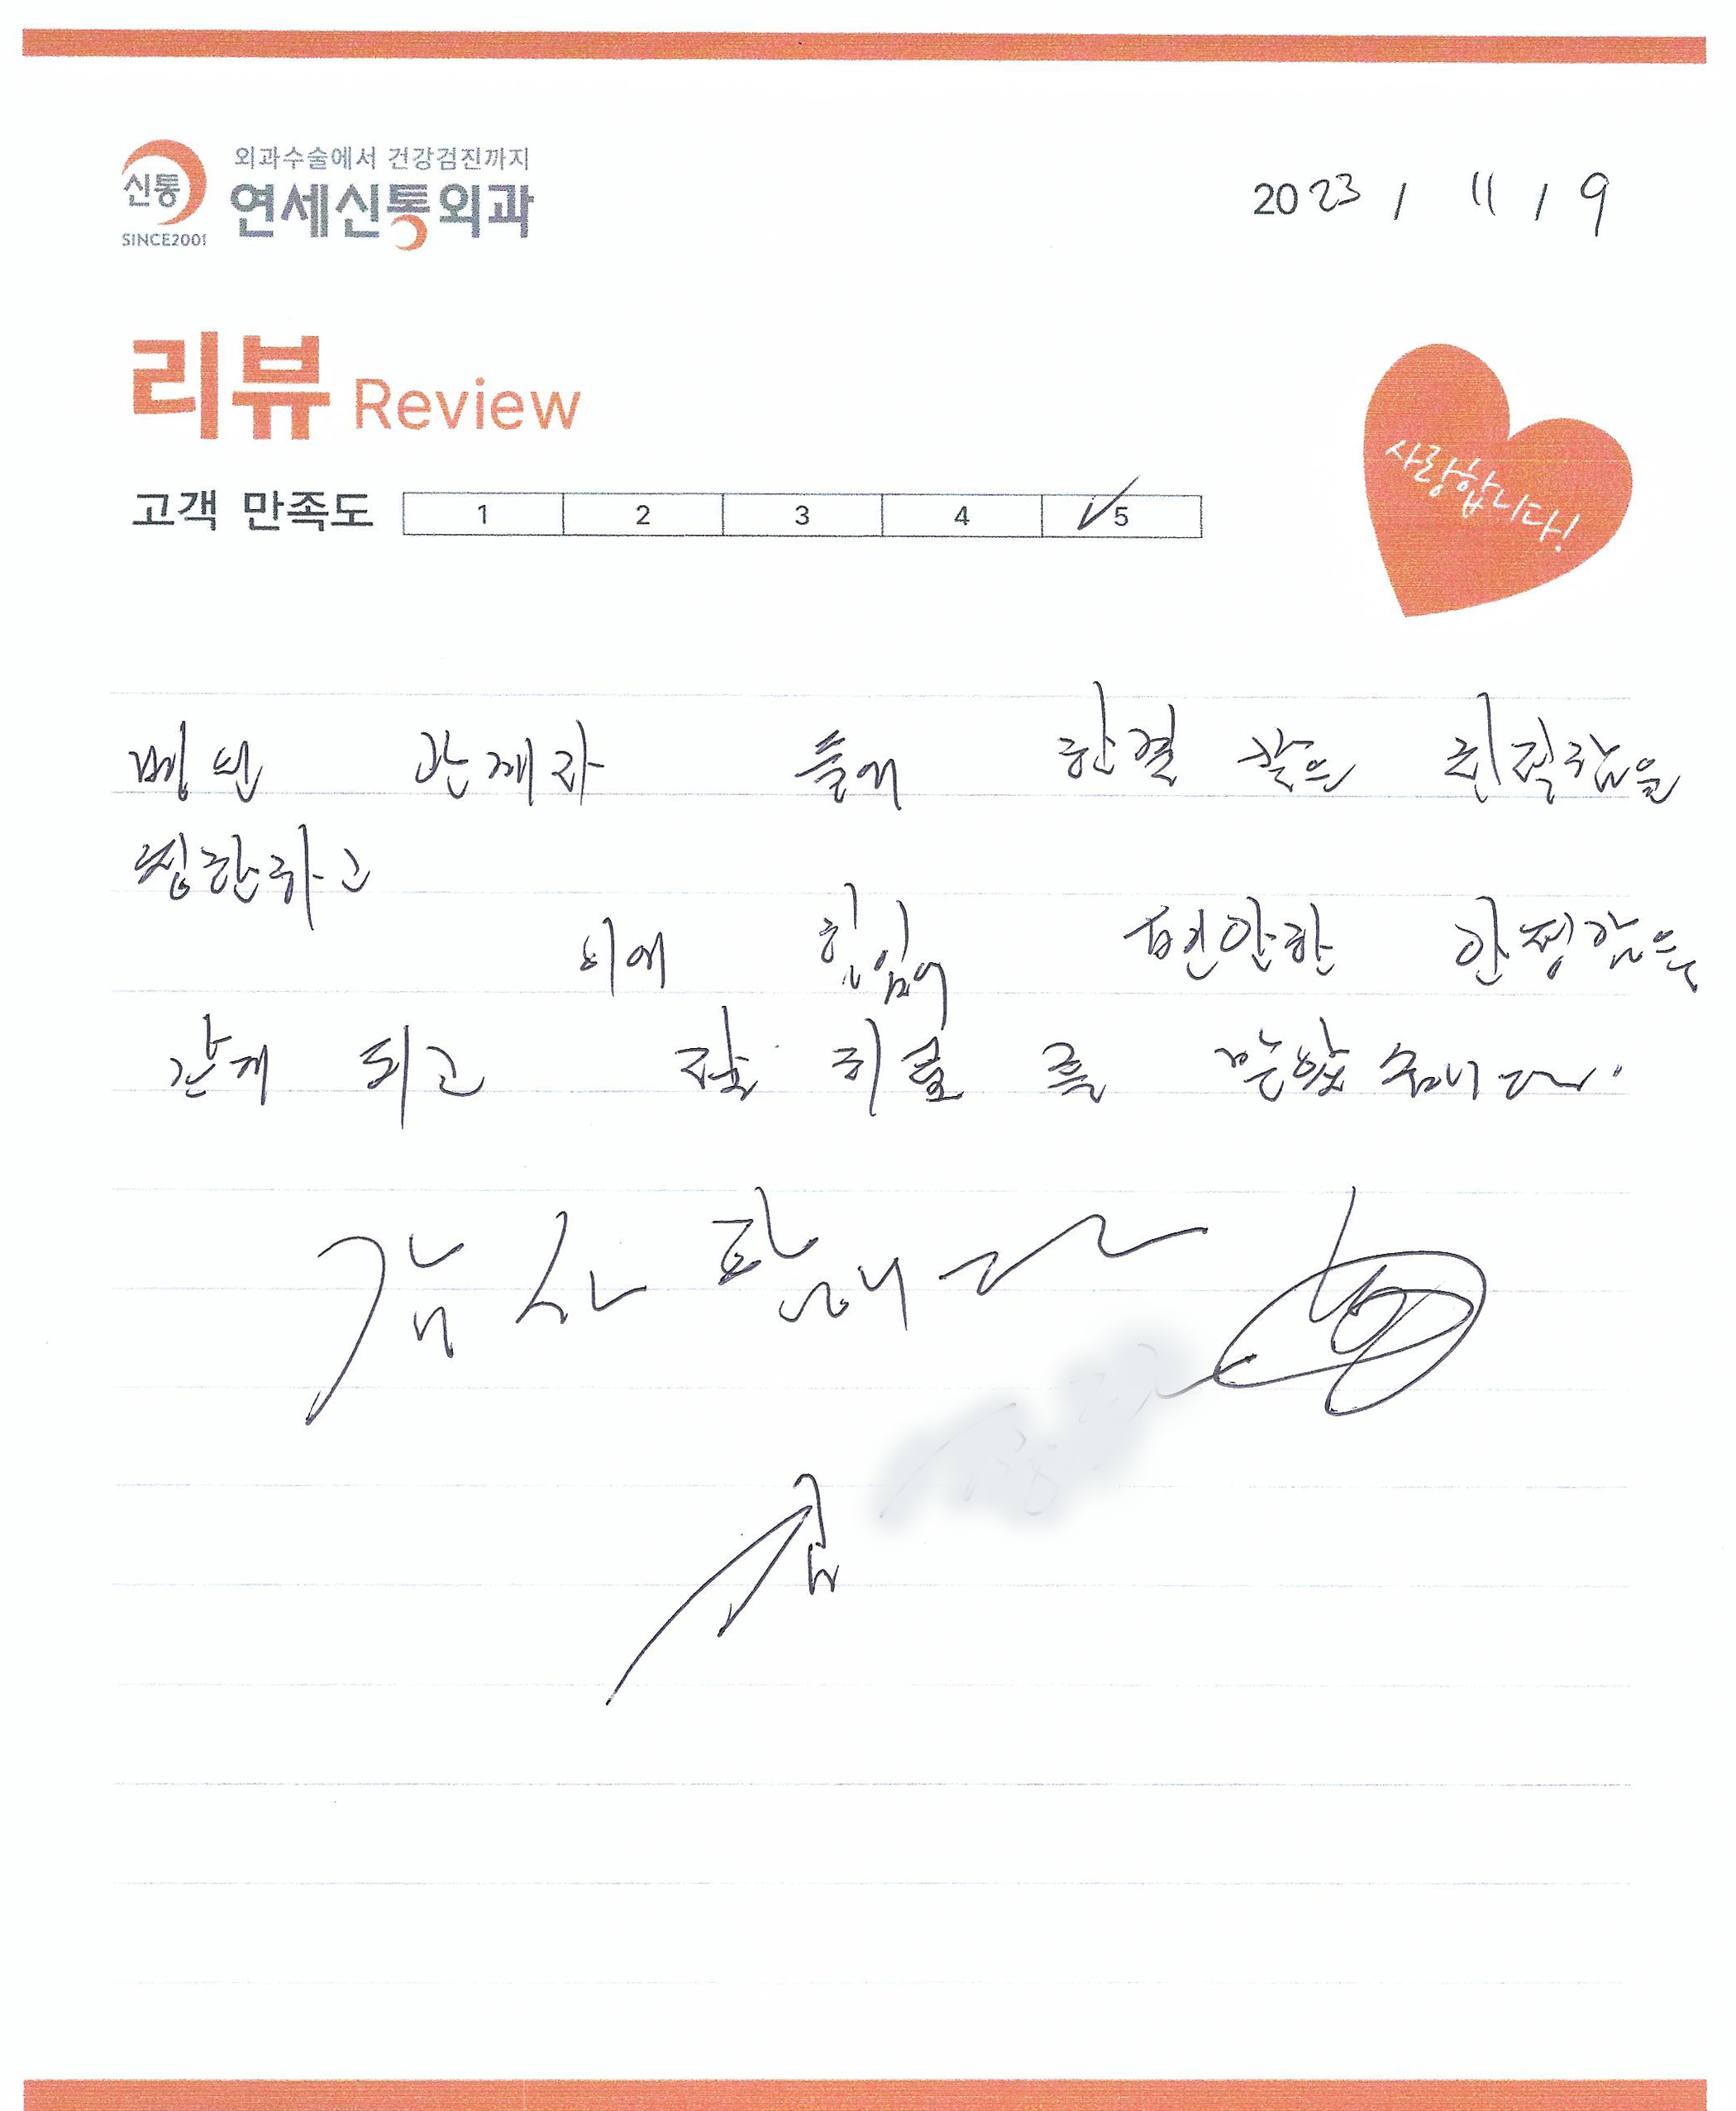 외과수술에서 건강검진까지
신통 연세신통외과
SINCE2001
2023 / 11 / 9
리뷰 Review
사랑합니다!
고객 만족도 1 2 3 4 5
병원 관계자 들에 한결 같은 친절함을
이에 힘입어 편안한 안정감을
갖게 되고 잘 치료 를 받았습니다.
감사합니다